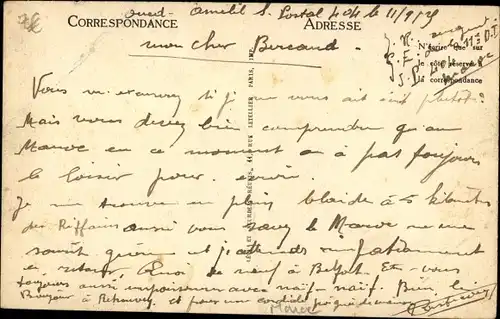 oued Amelil S. Postal 404 le 11/9/25
CORRESPONDANCE
ADRESSE
N'écrire que sur
le côté réservé à
la correspondance
mon cher Bercaud.
LÉVY ET NEURDEIN RÉUNIS, 44, RUE LETELLIER, PARIS, IMP.
Vous m'excuserez si je ne vous ait écrit plutôt?
Mais vous devez bien comprendre qu'au
Maroc en ce moment on a pas toujours
le loisir pour écrire.
Je me trouve en plein à 5 kilomètres
des Riffains aussi vous savez le Maroc ne me
sourit guère et j'attends impatiemment
Quoi de neuf à Belfort. Etes-vous
toujours aussi
Bonjour à et pour vous cordiale poignée de mains
Maroc